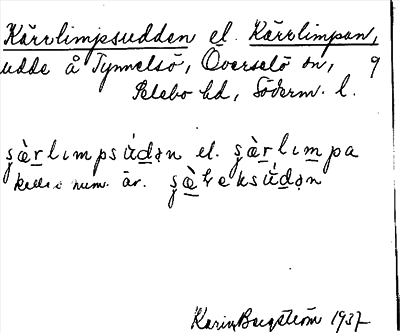 Kärrlimpsudden el. Kärrlimpan,
udde å Tynnelsö, Överselö sn, 9
Selebo hd, Söderm. l.
şæ̀rlımpsúdən el. şæ̀rlımpa
şæ̀beksúdən
Karin Bergström 1937